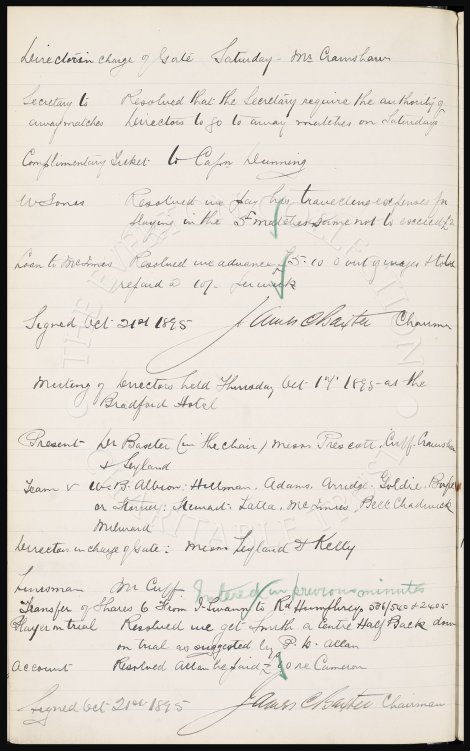 Director in charge of Gate Saturday - Mr Cramshaw
Secretary to Resolved that the Secretary require the authority of
away matches Directors to go to away matches on Saturdays
Complimentary Ticket to Capn Dunning
W Jones Resolved we pay his travelling expenses for
playing in the 5 matches same not to exceed
Loan to McInnes Resolved we advance £5-10-0 out of wages & to be
repaid @ 10/- per week
Signed Oct 21st 1895 James C Baxter Chairman
Meeting of Directors held Thursday Oct 17th 1895 at the
Bradford Hotel
Present Dr Baxter (in the chair) Messrs Prescott, Cuff, Cramshaw
& Leyland
Team v W. B. Albion: Hillman, Adams, Arridge, Goldie, Boyle
or Storrier; Stewart, Latta, McInnes, Bell Chadwick
Milward
Directors in charge of Gate: Messrs Leyland & Kelly
Linesman Mr Cuff Entered in previous minutes
Transfer of Shares 6 From J. Swann to Rd Humphreys 536/540 & 2405
Player on trial Resolved we get Smith a Centre Half Back down
on trial as suggested by P. W. Allan
Account Resolved Allan be paid re Cameron
Signed Oct 21st 1895 James C Baxter Chairman